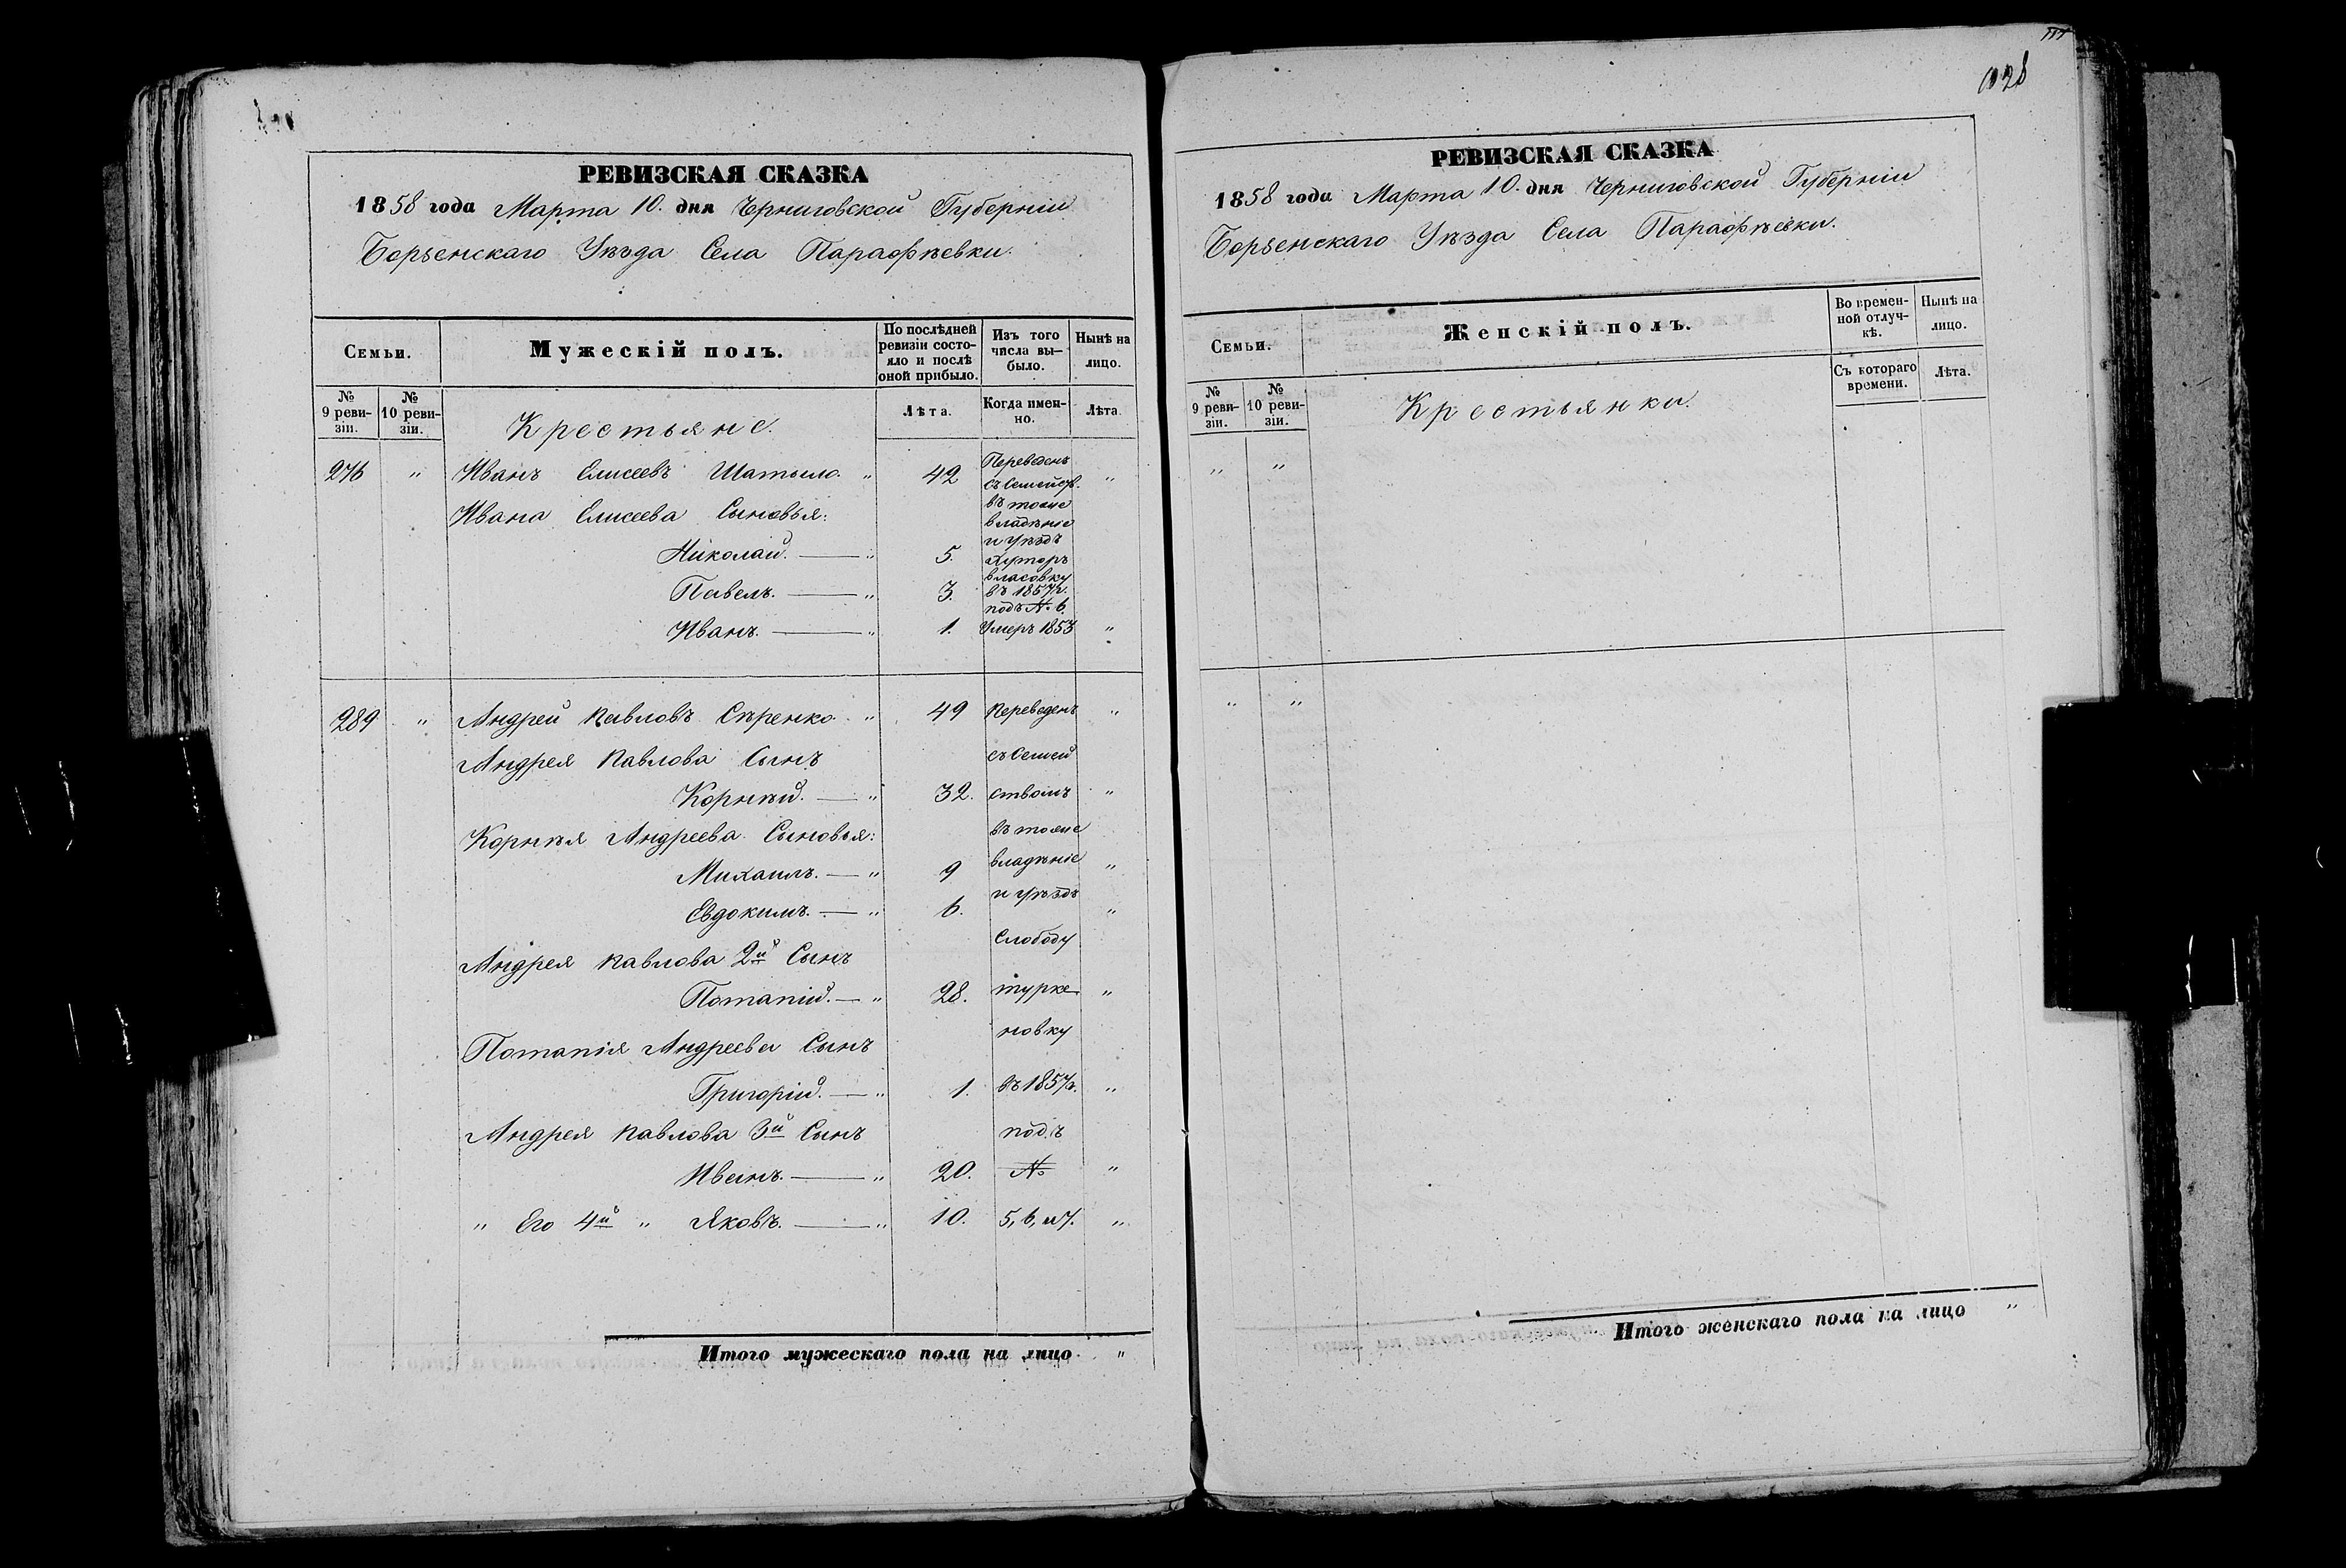 РЕВИЗСКАЯ СКАЗКА
1858 года Марта 10. дня Черниговской Губерніи
Борзенскаго Уѣзда Села Парафѣевки.
Семьи.
Мужескій полъ.
По послѣдней ревизіи состояло и послѣ оной прибыло.
Изъ того числа выбыло.
Нынѣ на лицо.
№ 9 ревизіи.
№ 10 ревизіи.
Лѣта.
Когда именно.
Лѣта.
Крестьяне.
276 " Иванъ Елисеевъ Шатыло. " 42 Переведенъ "
съ Семейст.
Ивана Елисеева Сыновья: въ тоже
владѣніе
и уѣздъ
Николай. — " 5. Хуторъ
Власовку
Павелъ. — " 3. въ 1857г.
подъ № 6.
Иванъ. — " 1. Умеръ 1853 "
289 " Андрей Павловъ Сѣренко. " 49 Переведенъ "
Андрея Павлова Сынъ съ Семей
Корнѣй. — " 32. ствомъ "
Корнѣя Андреева Сыновья: въ тоже
Михаилъ. — " 9 владѣніе "
Евдокимъ. — " 6. и уѣздъ "
Андрея Павлова 2й Сынъ Слободу
Потапій. — " 28. турке "
Потапія Андреева Сынъ новку
Григорій. — " 1. въ 1857г. "
Андрея Павлова 3й Сынъ подъ
Иванъ. — " 20. № "
" Его 4й " Яковъ. — " 10. 5, 6, и 7. "
Итого мужескаго пола на лицо "
1028
РЕВИЗСКАЯ СКАЗКА
1858 года Марта 10. дня Черниговской Губерніи
Борзенскаго Уѣзда Села Парафѣевки.
Семьи.
Женскій полъ.
Во временной отлучкѣ.
Нынѣ на лицо.
№ 9 ревизіи.
№ 10 ревизіи.
Съ котораго времени.
Лѣта.
Крестьянки.
" "
" "
Итого женскаго пола на лицо "